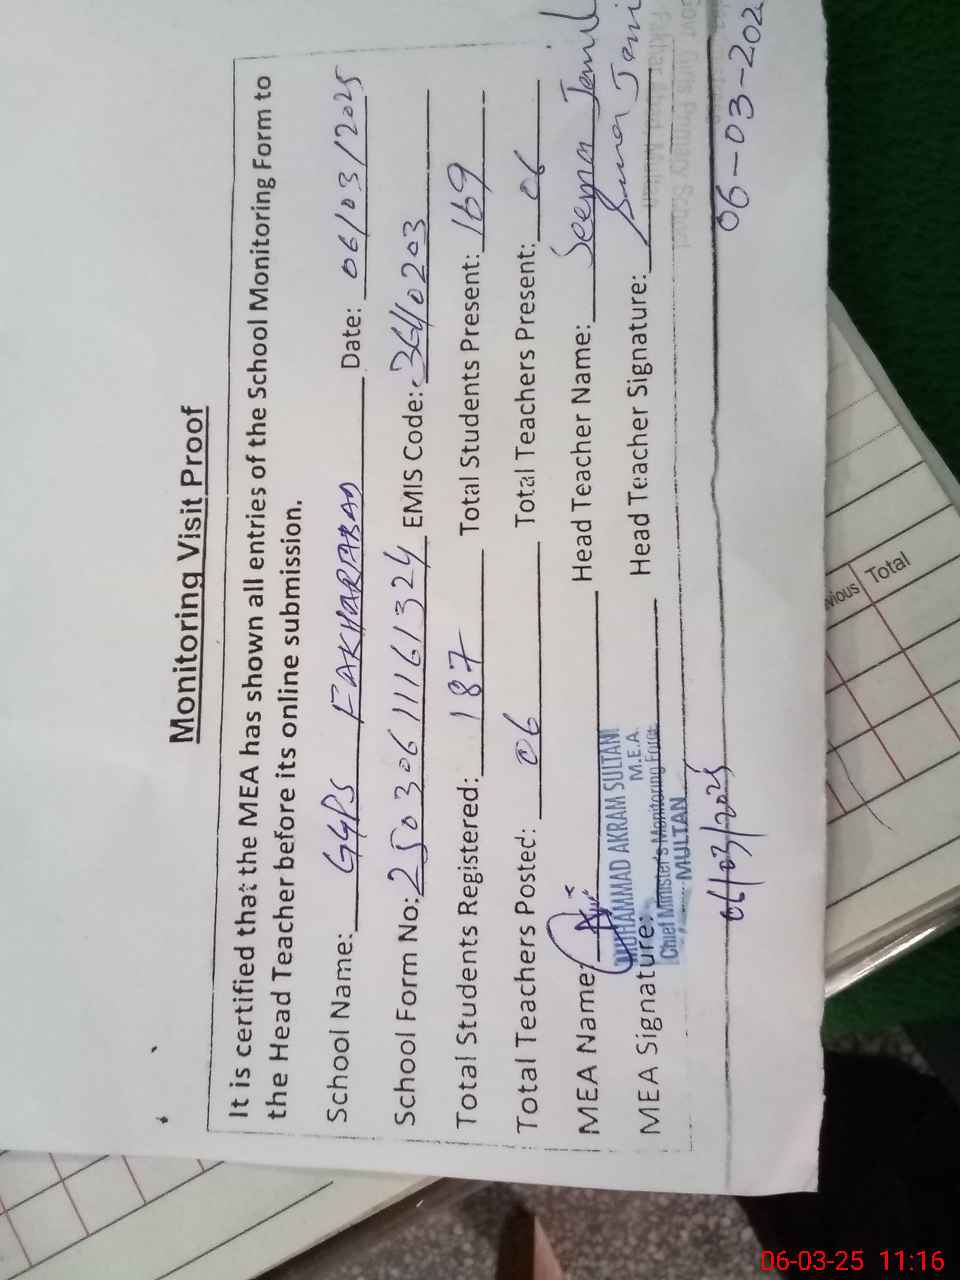 Monitoring Visit Proof
It is certified that the MEA has shown all entries of the School Monitoring Form to
the Head Teacher before its online submission.
School Name: GGPS FAKHARABAD Date: 06/03/2025
School Form No: 25030611161324 EMIS Code: 36410203
Total Students Registered: 187 Total Students Present: 169
Total Teachers Posted: 06 Total Teachers Present: 06
MEA Name: Head Teacher Name: Seema Jamil
MUHAMMAD AKRAM SULTANI
M.E.A.
MEA Signature: Head Teacher Signature:
Chief Minister's Monitoring Force
MULTAN
Govt. Girls Primary School
06/03/2025
06-03-202
vious Total
06-03-25 11:16